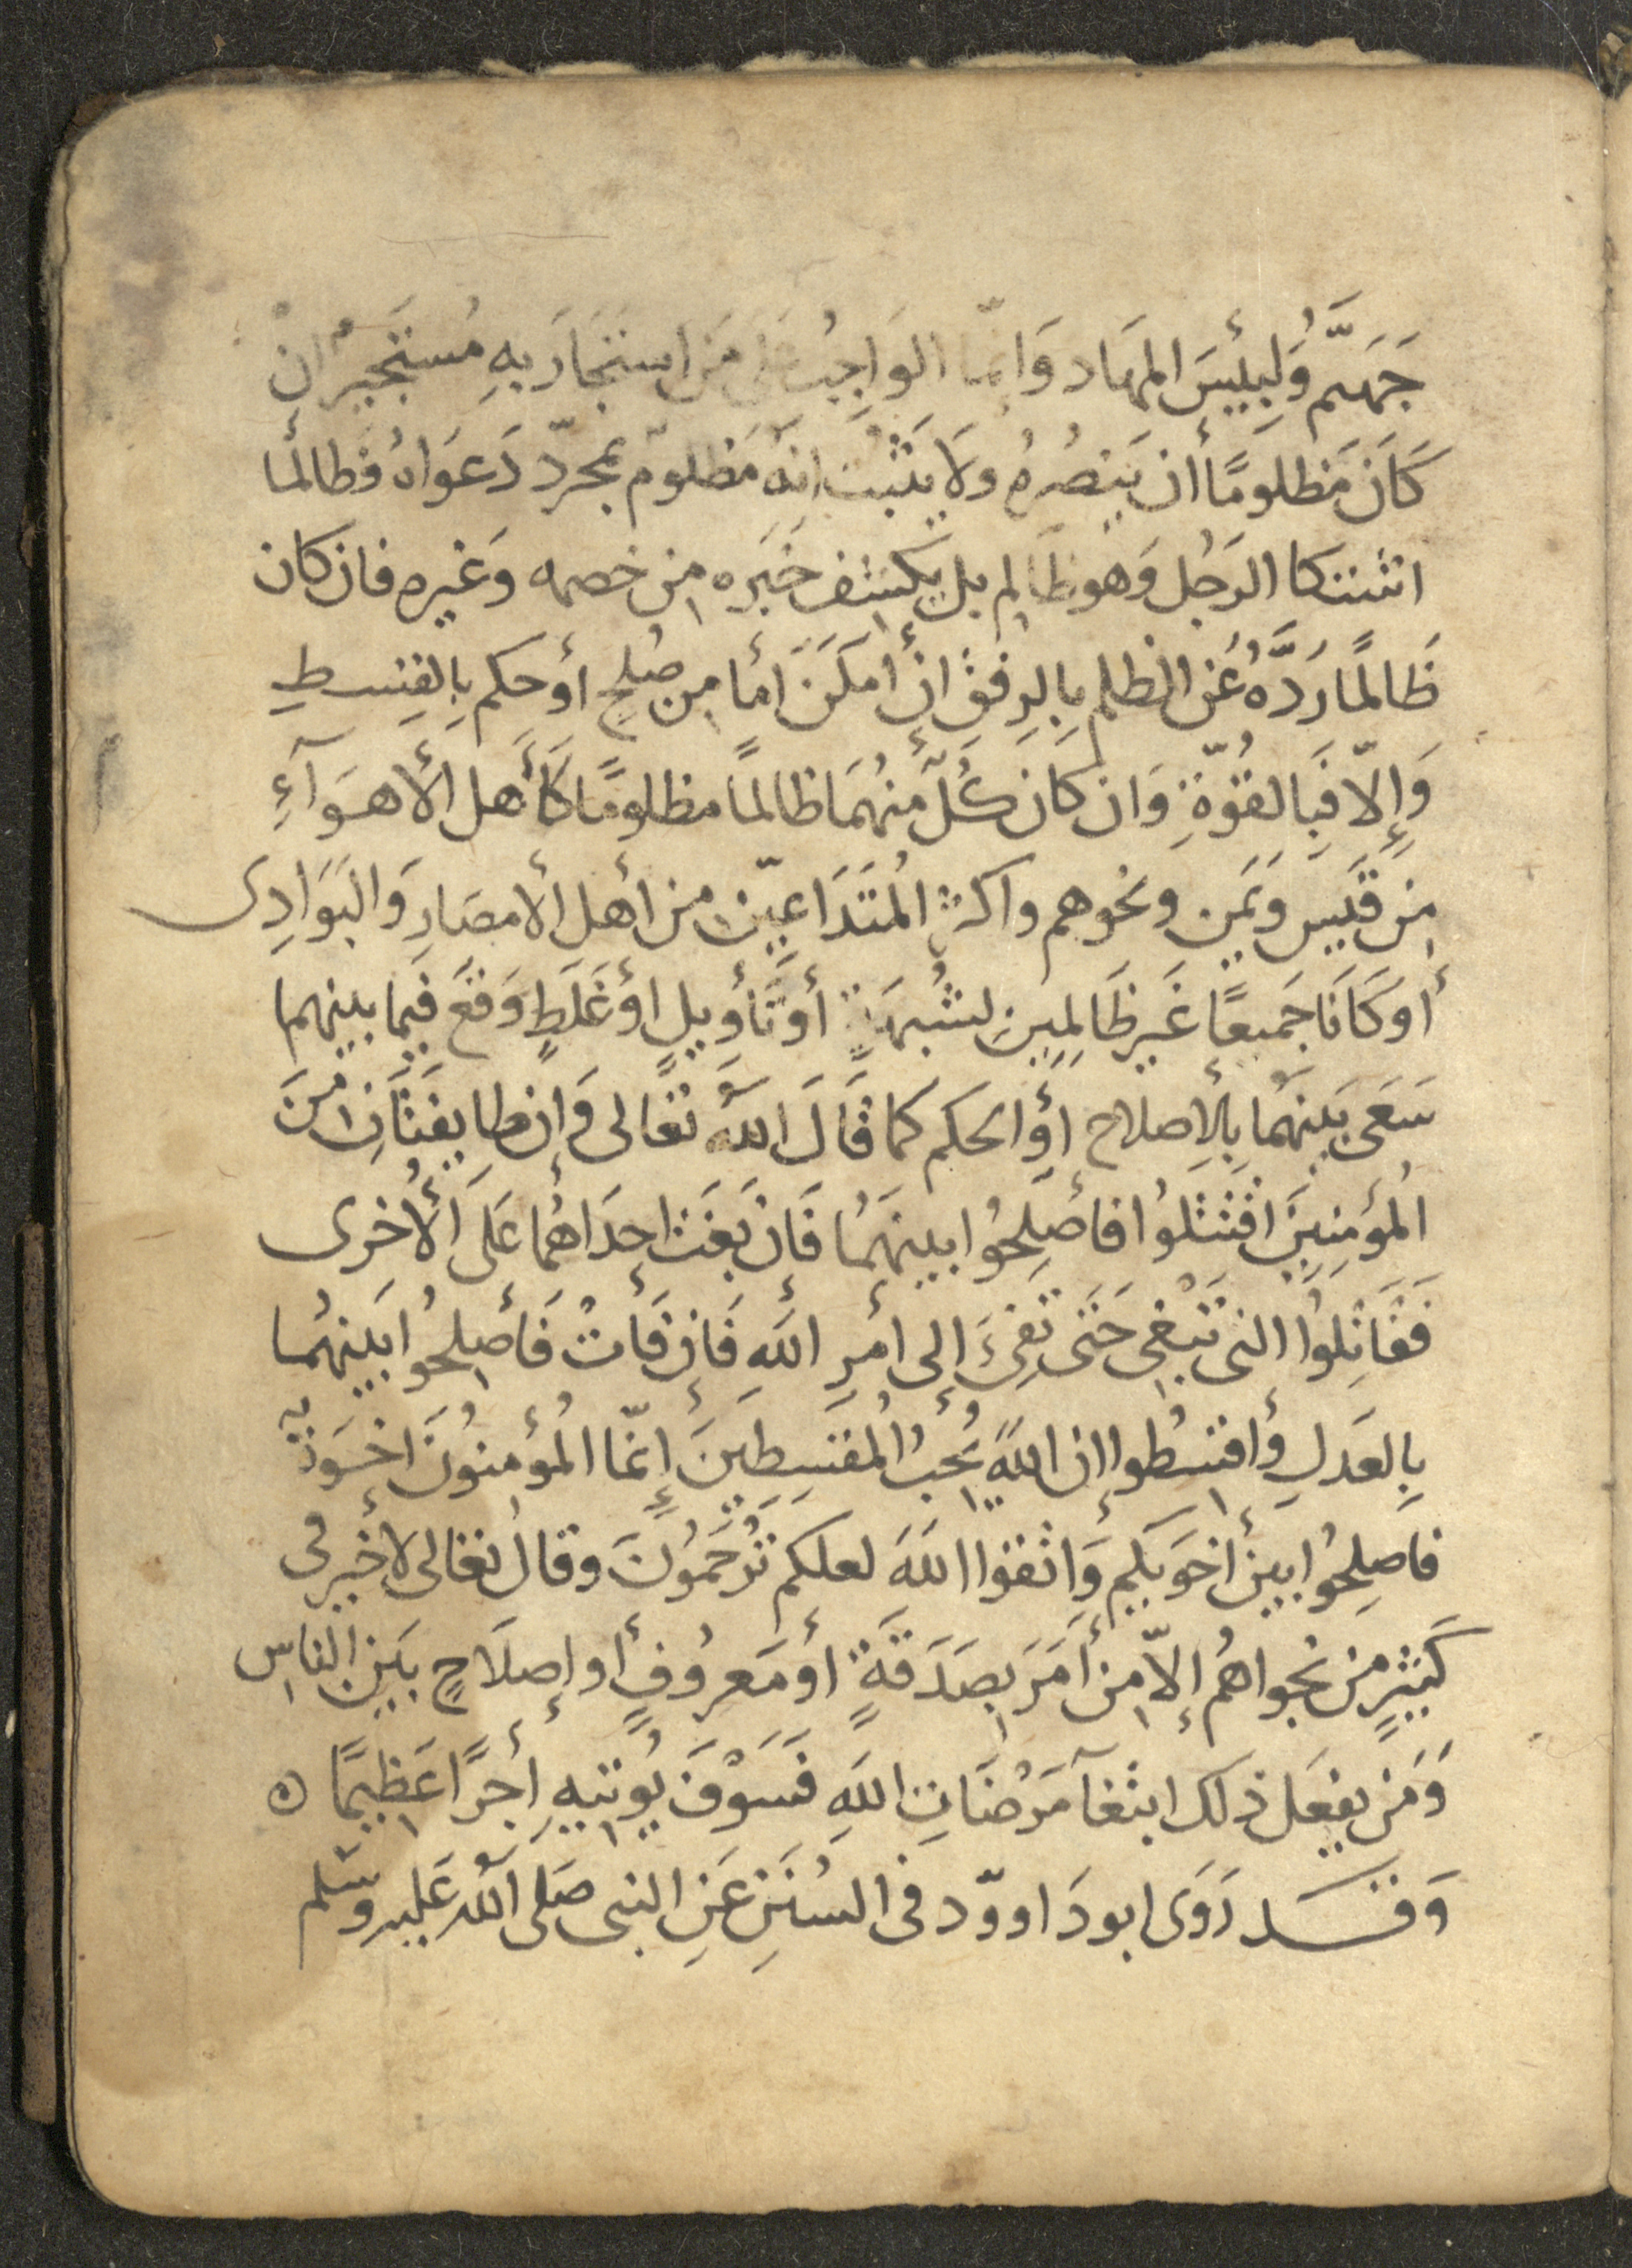 جَهَنَّم وَلَبِئْسَ المهَاد وَانمّا الوَاجِبُ عَلى مَن استجَارَ بِهِ مُستَجيرٌ ان
كَانَ مَظلومًا أن يَنصُرُهُ وَلَا يَثْبُتُ انهُ مَظلومٌ بمجرّد دَعوَاهُ فطالمَا
اشتكا الرَجُل وَهو ظالِم بل يكشف خَبَره مِن خصمه وَغيره فان كان
ظَالمًا رَدَّهُ عَن الظلم بِالرِفقِ إن أمكَنَ أمَا مِن صُلحٍ أو حكم بِالقِسطِ
وَإلّا فَبِالقُوّةِ وَان كَانَ كُلّ مِنهُمَا ظالمًا مظلومًا كَأهل الأهوَآءِ
مِن قَيسٍ وَيَمَنٍ ونحوهم واكثر المُتَدَاعِيّين من أهل الأمصَارِ وَالبَوَادِى
أو كَانَا جَميعًا غَير ظَالِمِينِ لشُبهَةٍ أو تَأوِيلٍ أو غَلَطٍ وَقعَ فيما بينهما
سَعَى بَينهُمَا بِالإصلاح أو الحكم كما قَالَ اللّه تعَالى وَإن طايفتَانِ مِنَ
المُؤمِنِينَ اقتَتلُوا فأصلِحُوا بينهمَا فَإن بَغَت إحدَاهُمَا عَلَى الأُخرى
فَقَاتِلوُا التى تَبْغِى حَتَى تَفِىَٔ إلى أمرِ اللّهِ فَإن فَأتْ فَأصلِحُوا بَينهُما
بِالعَدلِ وَأقسطُوا إن اللّهَ يُحِبُ المُقسِطِينَ إنمّا المُؤمِنُونَ اخوَةٌ
فاصلِحُوا بين أخَوَيكم وَاتقوا اللّهَ لعلكم تُرْحَمُونَ وقال تعالى لا خير فى
كَثيرٍ من نجواهُم إلاّ مِن أمَرَ بصَدَقةٍ أو مَعرُوفٍ أو إصلَاحٍ بَين الناسِ
وَمَن يفعَل ذلك ابتغآ مَرْضَاتِ اللّهِ فَسَوْفَ يُؤتيهِ أجرًا عَظِيمًا ه
وَقد رَوَى ابو دَاووّد فى السُنَنِ عَنِ النبى صَلى اللّه عَليهِ وسَلم